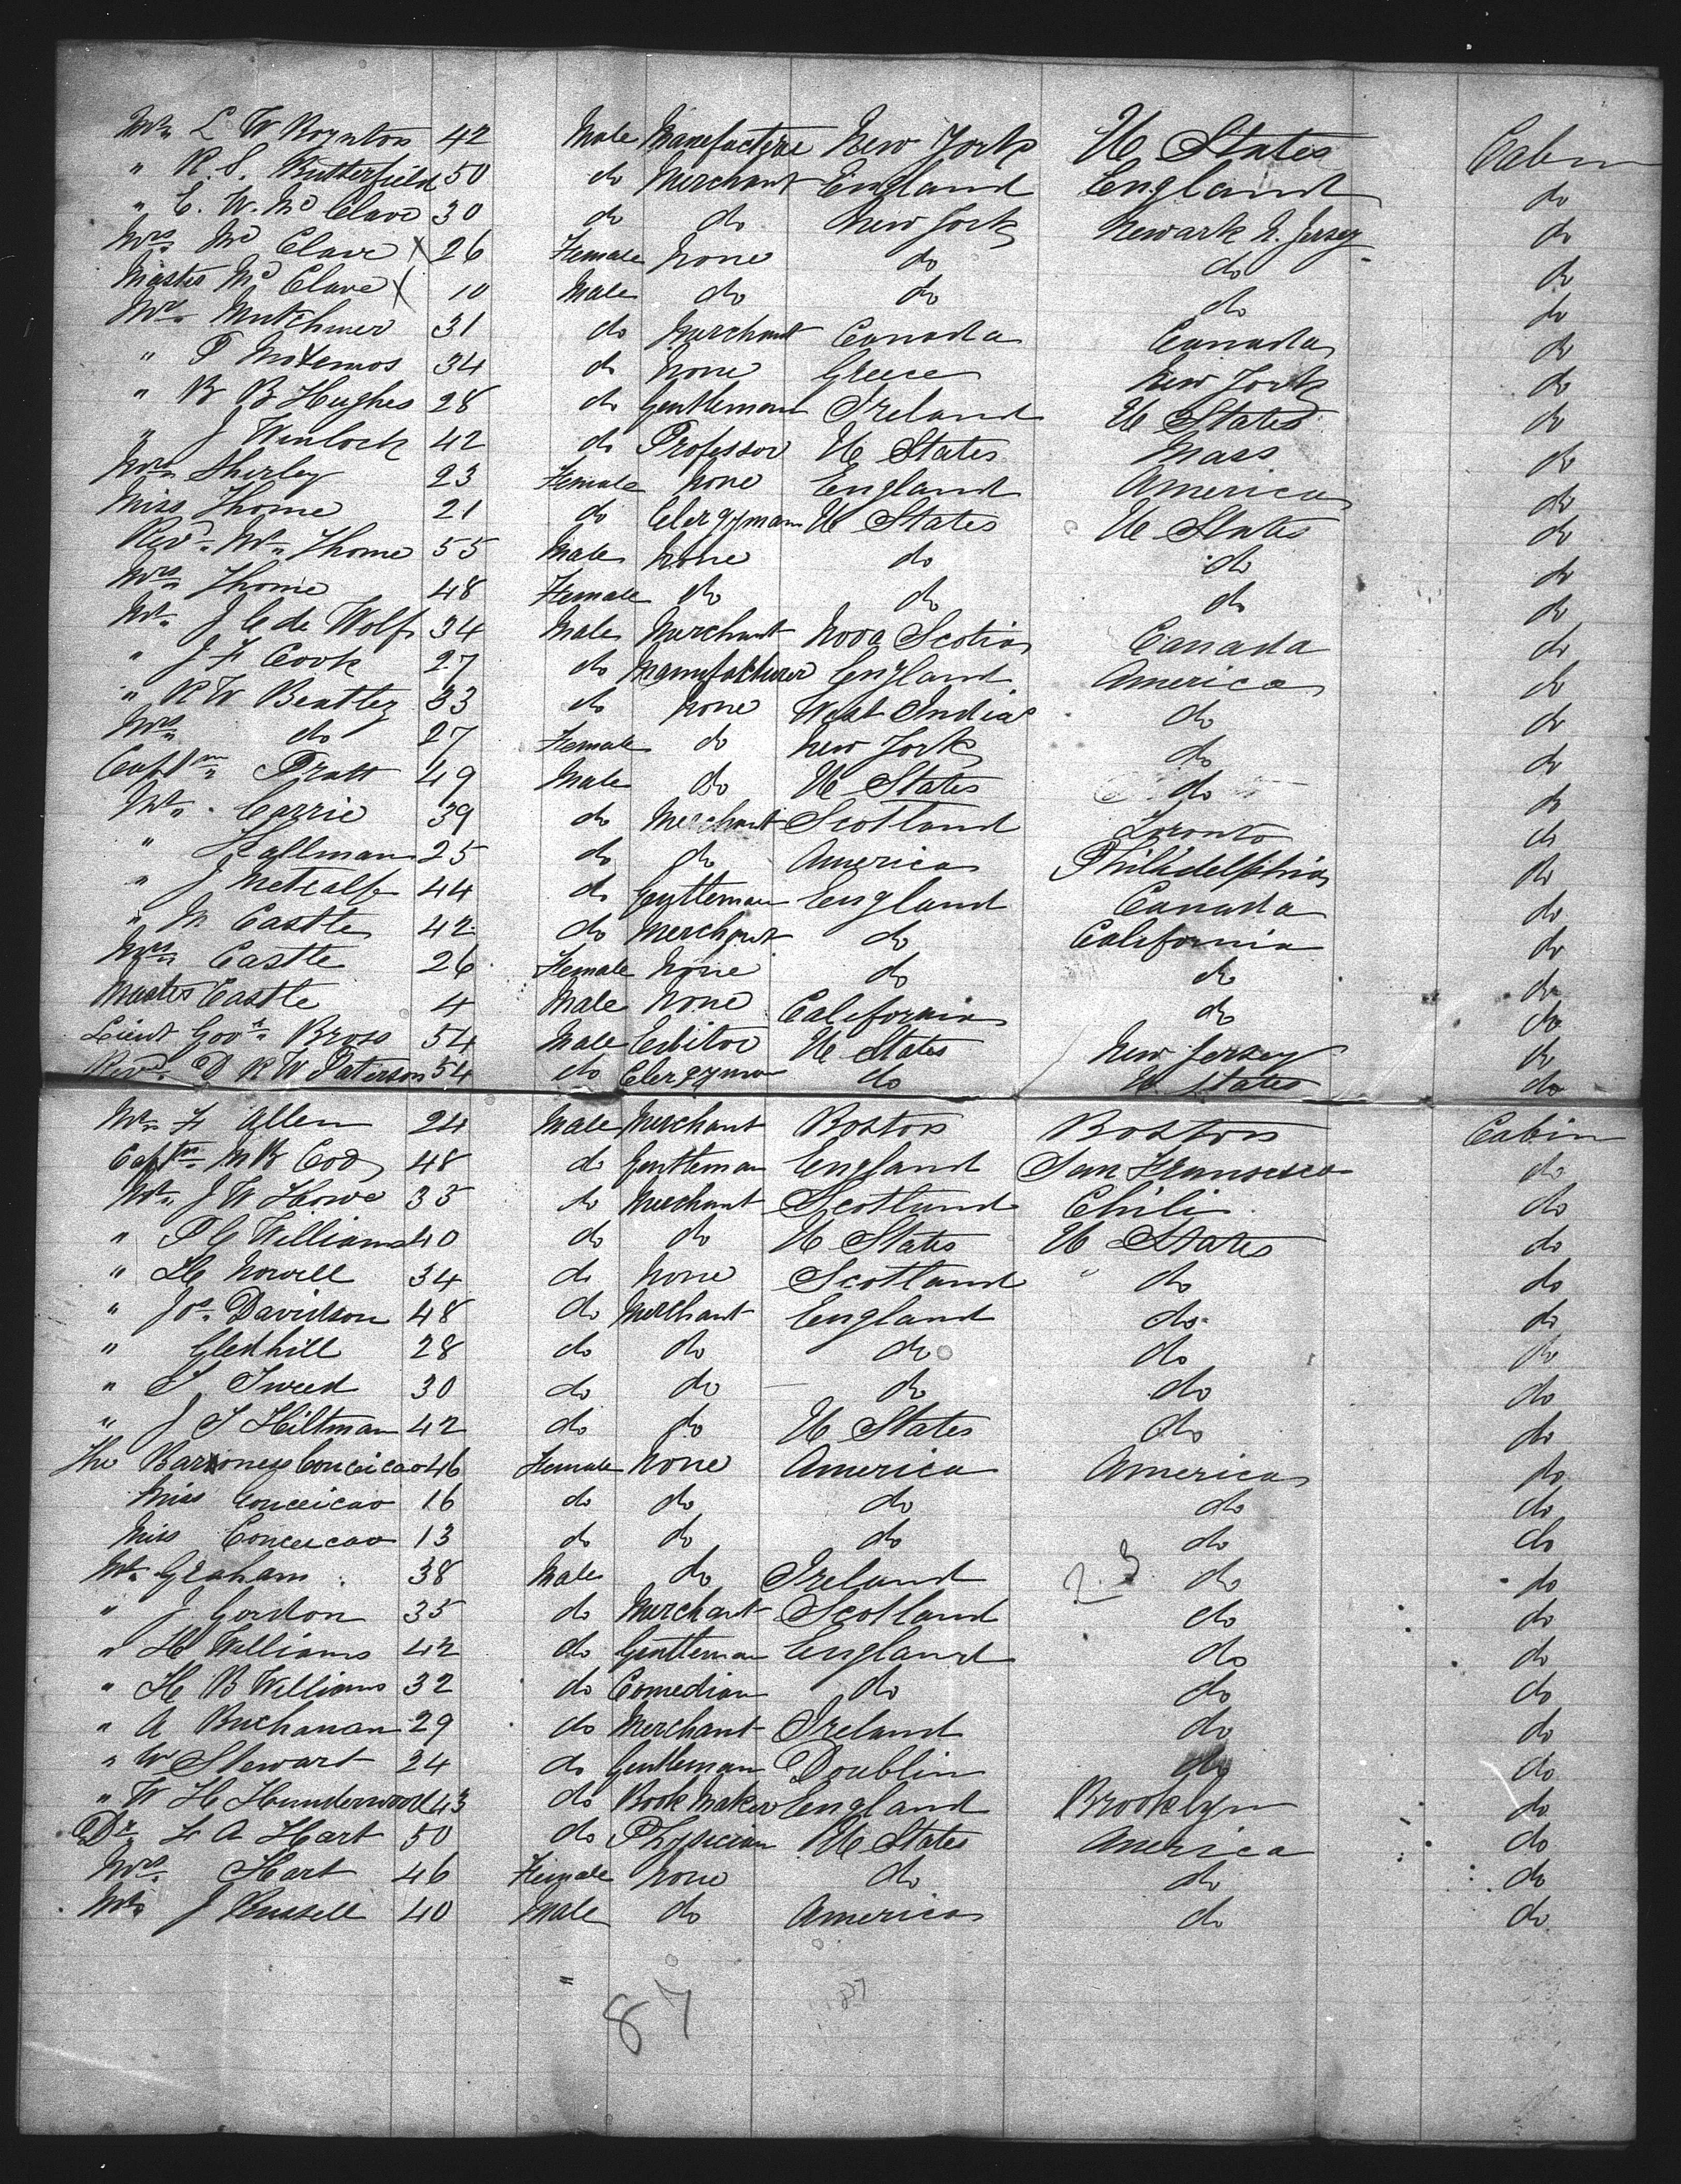 Mr. L W Boynton 42 Male Manufacture New York U States Cabin
" R. S. Butterfield 50 do Merchant England England do
" E. W. Mc Clave 30 do do New York Newark N. Jersey do
Mrs Mc Clave X 26 Female None do do do
Master Mc Clave X 10 Male do do do do
Mr. Mutchmer 31 do Merchant Canada Canada do
" P 34 do None Greece New York do
" B B Hughes 28 do Gentleman Ireland U States do
" J Winlock 42 do Professor U States Mass do
Mrs Sherley 23 Female None England America do
Miss Thome 21 do Clergyman U States U States do
Revd. Mr. Thome 55 Male None do do do
Mrs Thome 48 Female do do do do
Mr. J C de Wolf 34 Male Merchant Nova Scotia Canada do
" J F Cook 27 do Manufacturer England America do
" R W Beatley 33 do None West Indias do do
Mrs do 27 Female do New York do do
Captn. Pratt 49 Male do U States do do
Mr. Carrie 39 do Merchant Scotland Toronto do
" Hallman 25 do do America Philidelphia do
" J Metcalf 44 do Gentleman England Canada do
" M Castle 42 do Merchant do California do
Mrs Castle 26 Female None do do do
Master Castle 4 Male None California do do
Lieut Govr. Bross 54 Male Editor U States New Jersey do
Revd. D R W Paterson 54 do Clergyman do U States do
Mr. F Allen 24 Male Merchant Boston Boston Cabin
Captn. M R 48 do Gentleman England San Fransisco do
Mr. J W Howe 35 do Merchant Scotland Chili do
" P C Williams 40 do do U States U States do
" H Nowell 34 do None Scotland " do do
" Jos. Davidson 48 do Merchant England do do
" Gledhill 28 do do do do do
" S Tweed 30 do do do do do
" J S Hiltman 42 do do U States do do
The Barxoness Conceicao 46 Female None America America do
Miss Conceicao 16 do do do do do
Miss Conceicao 13 do do do do do
Mr. Graham 38 Male do Ireland do do
" J Gordon 35 do Merchant Scotland do do
" H Williams 42 do Gentleman England do do
" H B Williams 32 do Comedian do do do
" A Buchanan 29 do Merchant Ireland do do
" W Stewart 24 do Gentleman Doublin do do
" W H Hunderwood 43 do Book Maker England Brooklyn do
Dr. F A Hart 50 do Physician U States America do
Mrs. Hart 46 Female None do do do
Mr. J Russell 40 Male do America do do
87